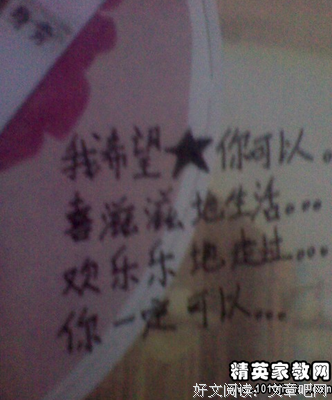 我希望★你可以。
喜滋滋地生活。。。
欢乐乐地走过。。。
你一定可以。。。
精英家教网
好文阅读：文章吧网